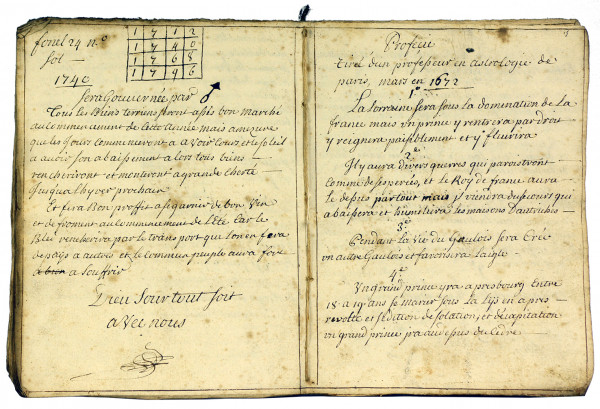 1 7 1 2
1 7 4 0
1 7 6 8
1 7 9 6
fonel 24 n.º
soit
1740
sera Gouuernée par ♂
Tous les Biens terriens seront assés bon marché
au commencement de cete année mais amesure
que les jours commenceront a Voir leurs et le soleil
a auoir son abaisement alors tous biens
rencheriront et monteront a grande cherté
jusqual hyver prochain
Et fera Bon proffit a sigarnir de bon Ven
et de froment au commancement de l'Eté Car le
Blé rencherira par le transport que lon en fera
de pays a autois et le commun peuple aura fort
a bien a souffrir
Dieu Sour tout soit
a Vec nous
Profecie
tirée d'un professeur en astrologie de
paris, mars en 1672
1º
La Lorraine sera sous la domination de La
france mais Un prince y rentrera par droit
y reignera paisiblement et y fleurira
2º
Il y aura divers guerres qui paroistront
comme desesperés, et le Roy de france aura
le desus par tout mais il viendra du secours qui
abaisera et humiliera les maisons Dautriche
3º
Pendant la Vie du Gaulois sera Crée
vn autre Gaulois et favorisera Lainte
4º
Vn grand prince yra a presbourg Entre
18 a 19 ans se marier sous La Lys en apres
revolte et sedition desolation et decapitation
vn grand prince ira au desus du Cedre